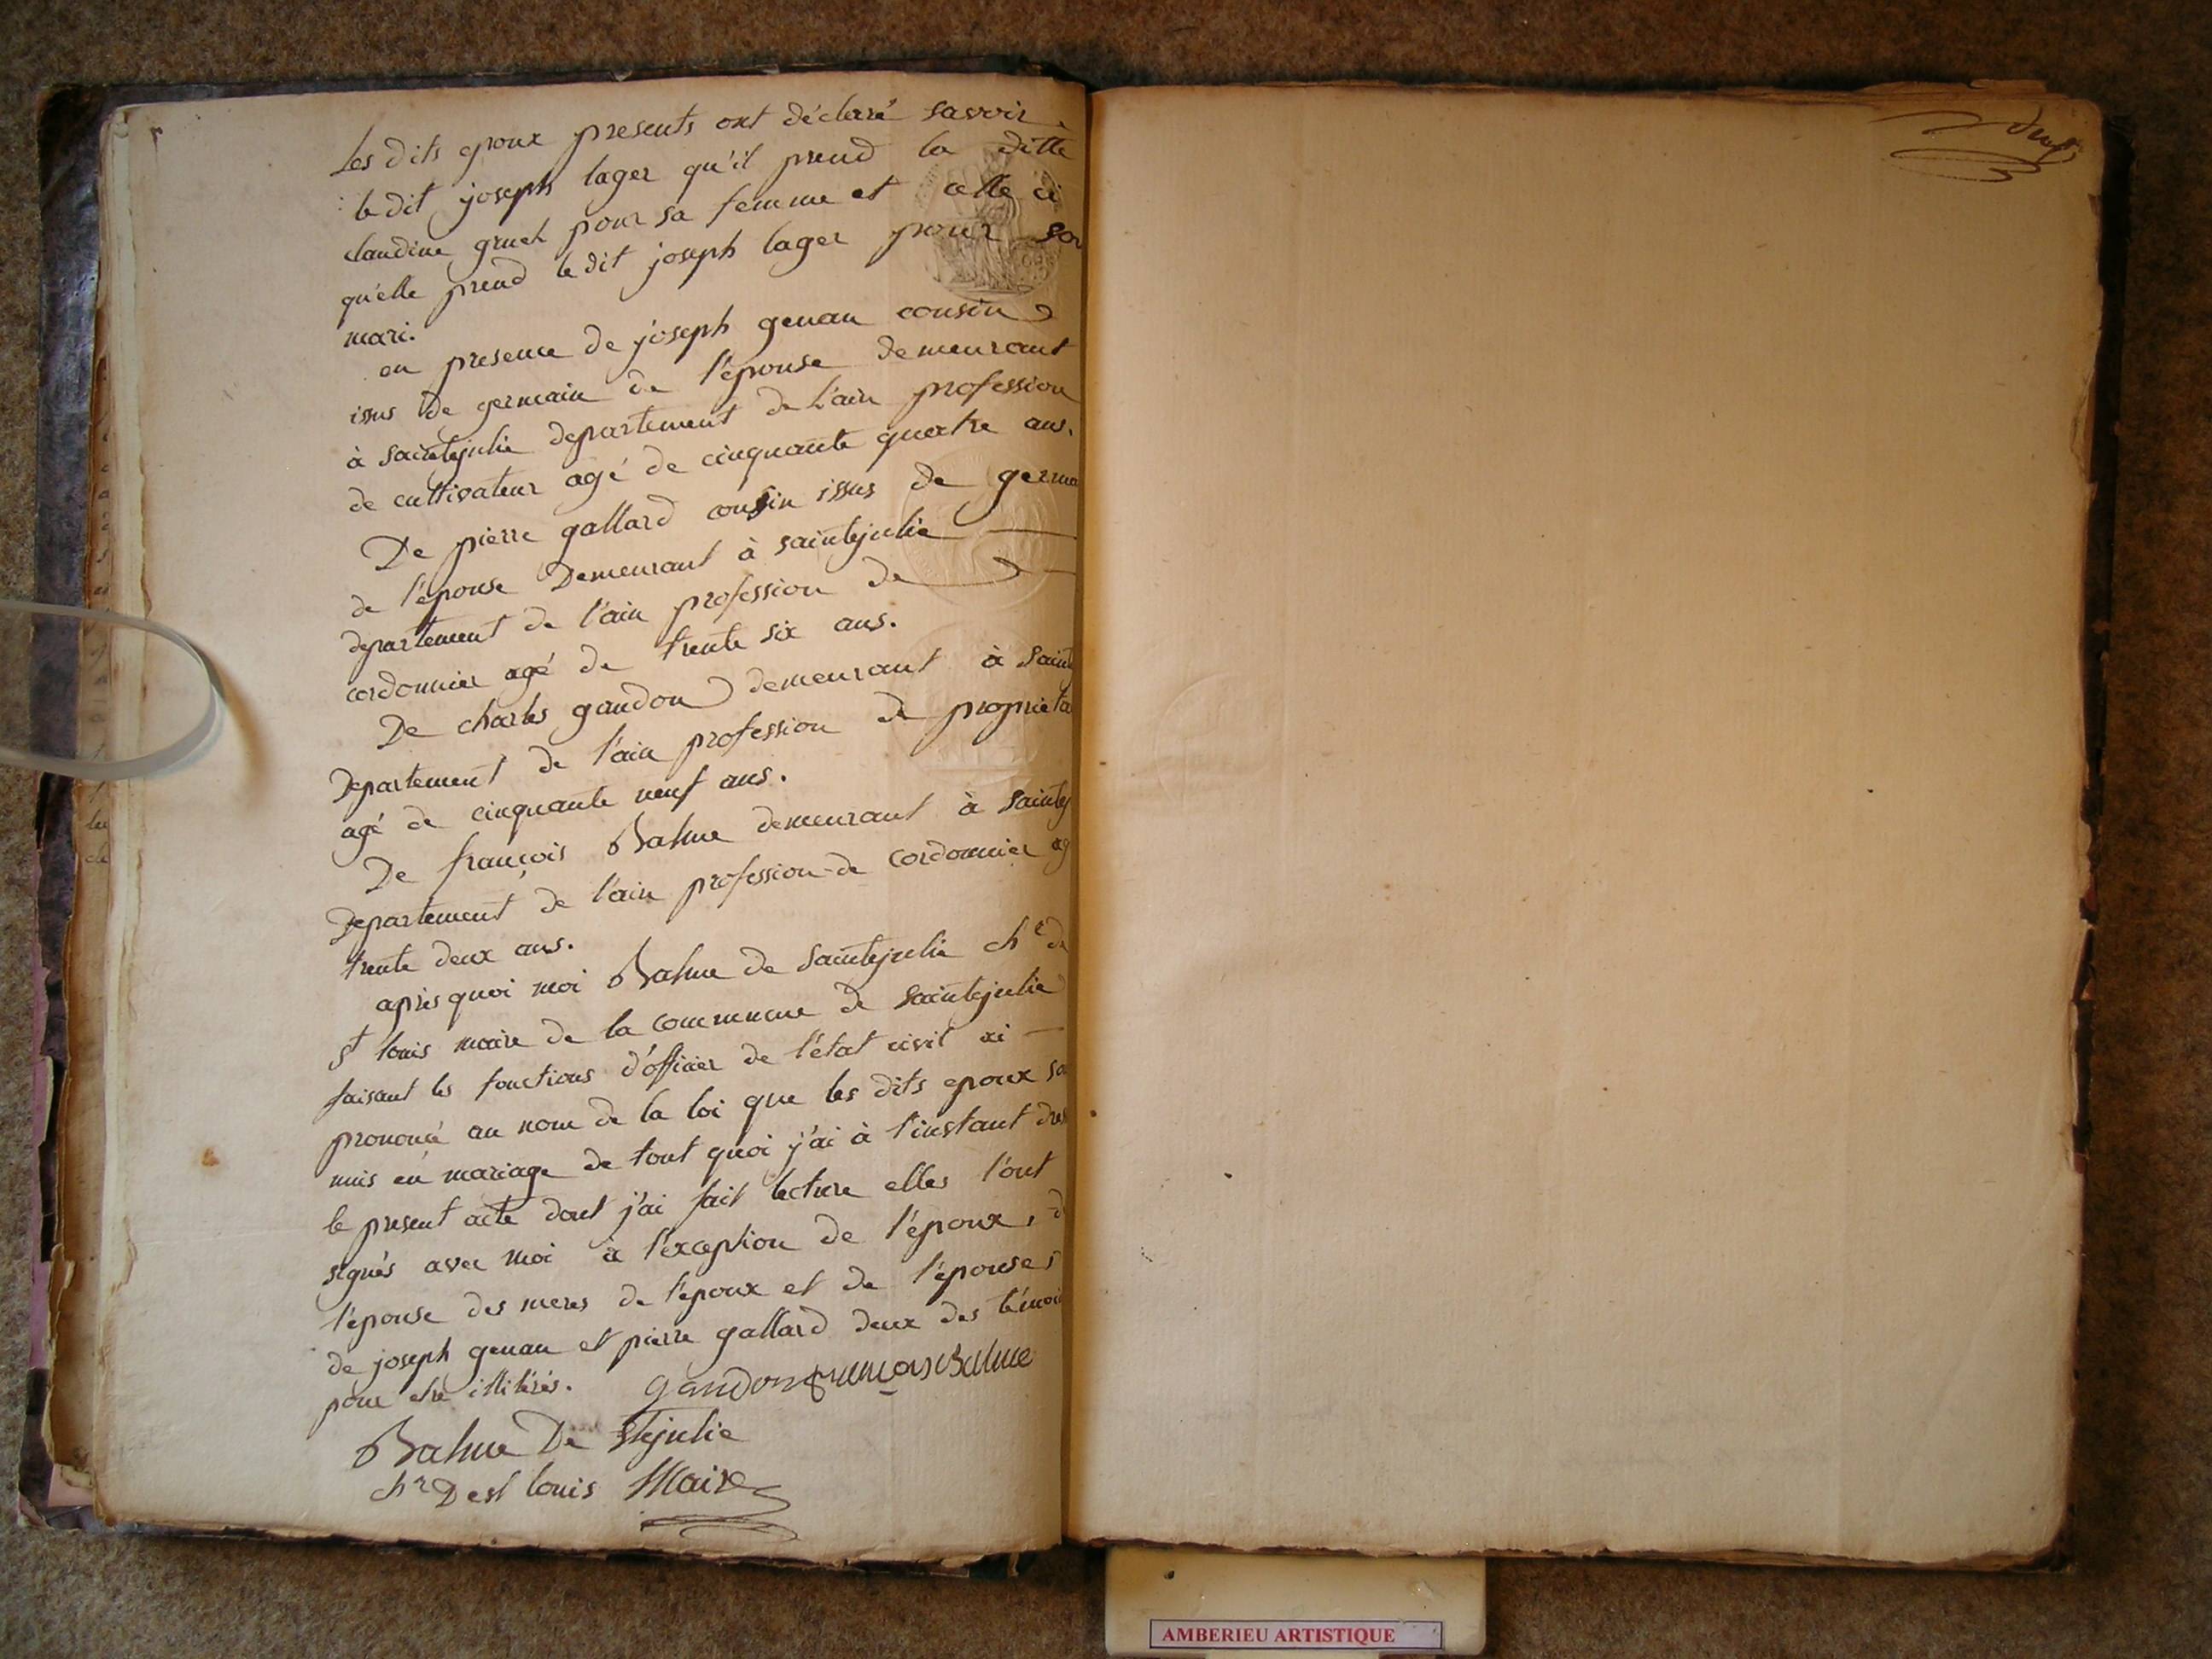 Les dits epoux presents ont déclaré savoir
le dit joseph lager qu'il prend la ditte
claudine gruel pour sa femme et celle ci
qu'elle prend le dit joseph lager pour son
mari.
en presence de joseph genan cousin
issus de germain de l'épouse demeurant
à saintejulie departement de l'ain profession
de cultivateur agé de cinquante quatre ans.
De pierre gallard cousin issus de germa
de l'épouse Demeurant à saintejulie
departement de l'ain profession de
cordonnier agé de trente six ans.
De charles gandon demeurant à saint
Departement de l'ain profession de proprieta
agé de cinquante neuf ans.
De françois Balme demeurant à saintej
Departement de l'ain profession de cordonnier ag
trente deux ans.
après quoi moi Balme de saintejulie chr de
st louis maire de la commune de saintejulie
faisant les fonctions d'officier de l'état civil ai
prononcé au nom de la loi que les dits epoux so
unis en mariage de tout quoi j'ai à l'instant dres
le present acte dont j'ai fait lecture elles l'ont
signés avec moi à l'exception de l'époux, d
l'épouse des meres de l'epoux et de l'épouse,
de joseph genan et pierre gallard deux des témoi
pour etre illitérés. gandon françois Balme
Balme De Stejulie
chr De st louis Maire
AMBERIEU ARTISTIQUE